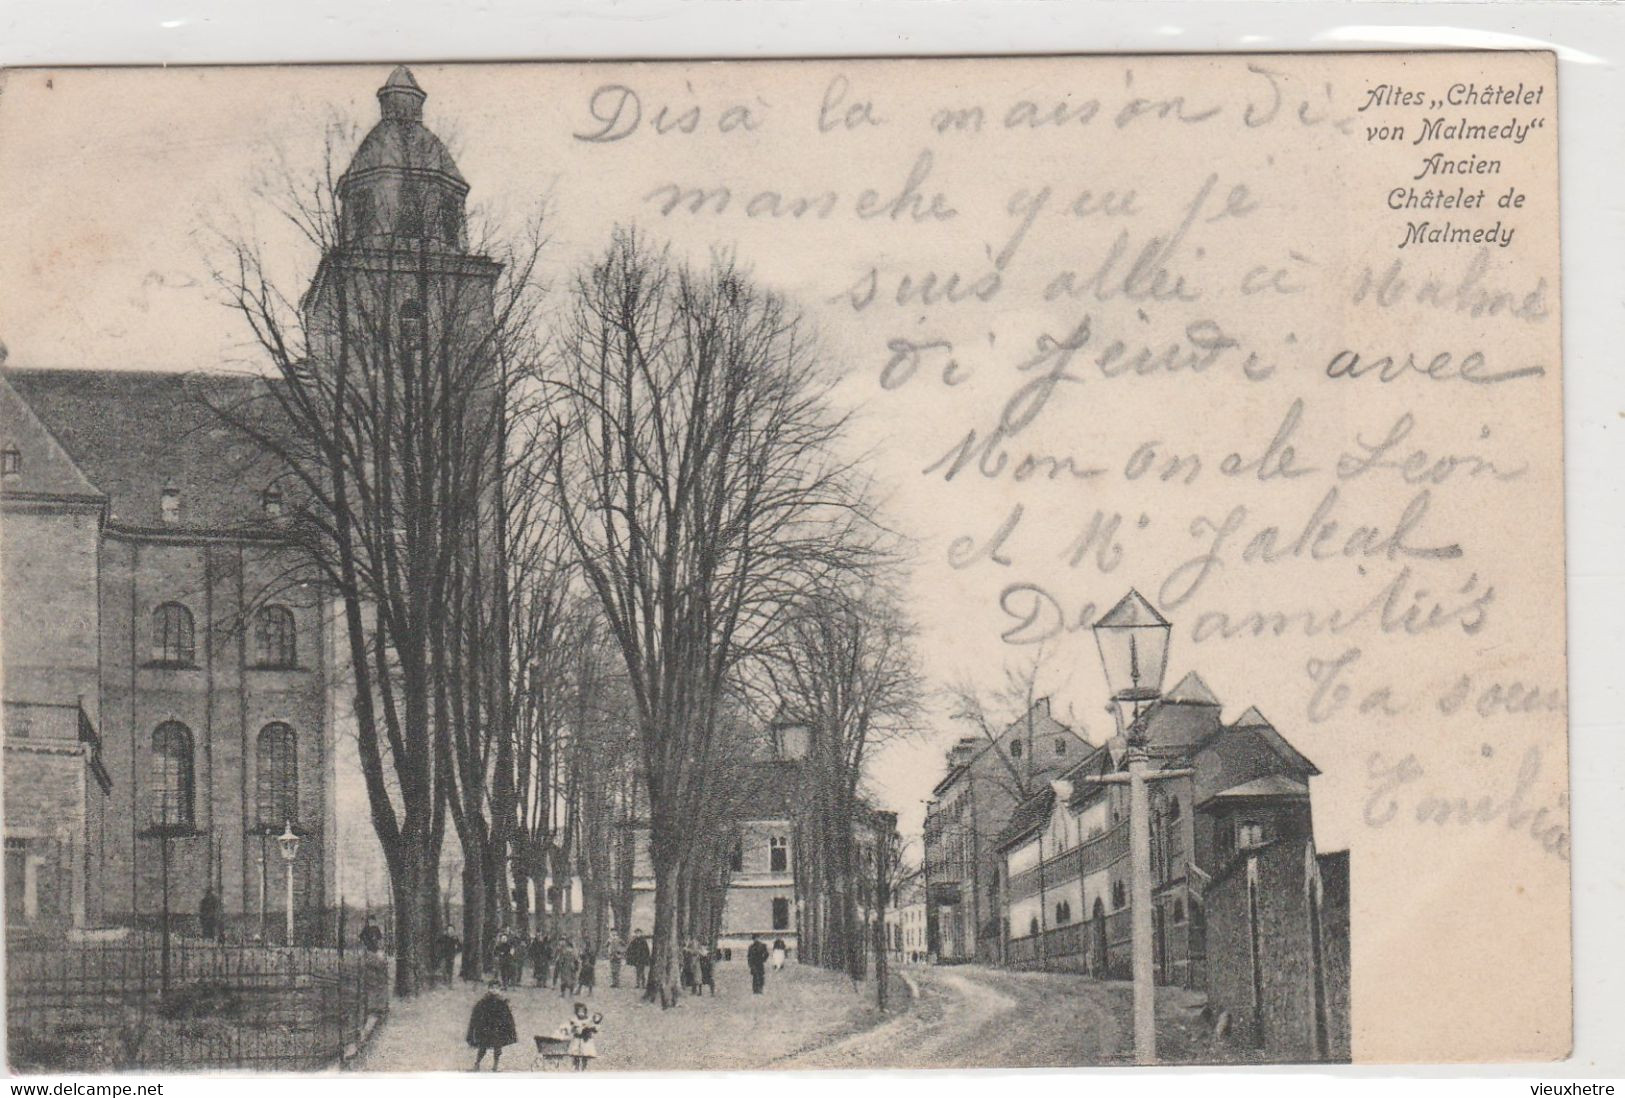 Altes „Châtelet
von Malmedy“
Ancien
Châtelet de
Malmedy
Disà la maison Di
manche que je
suis allei à Malmé
di Jeudi avec
Mon oncle Léon
et Mr Jakal
De amitiés
Ta soeu
Emilie
vieuxhetre